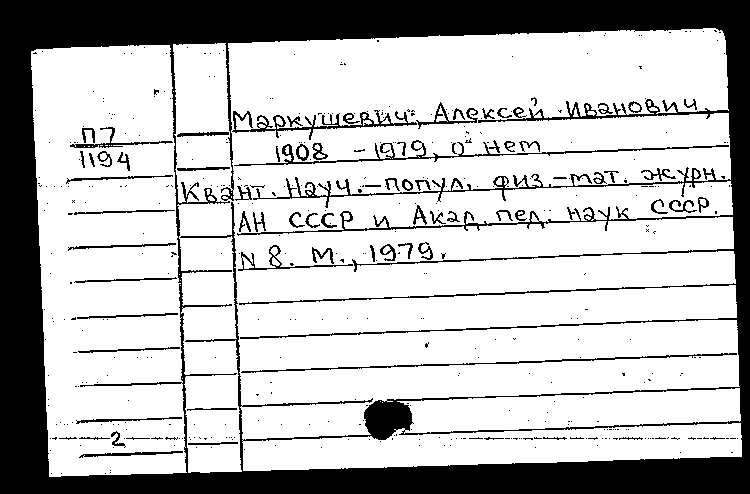 Маркушевич, Алексей Иванович,
П7
1194
1908 - 1979, о нем
Квант. Науч.-попул. физ.-мат. журн.
АН СССР и Акад. пед. наук СССР.
N 8. М., 1979.
2